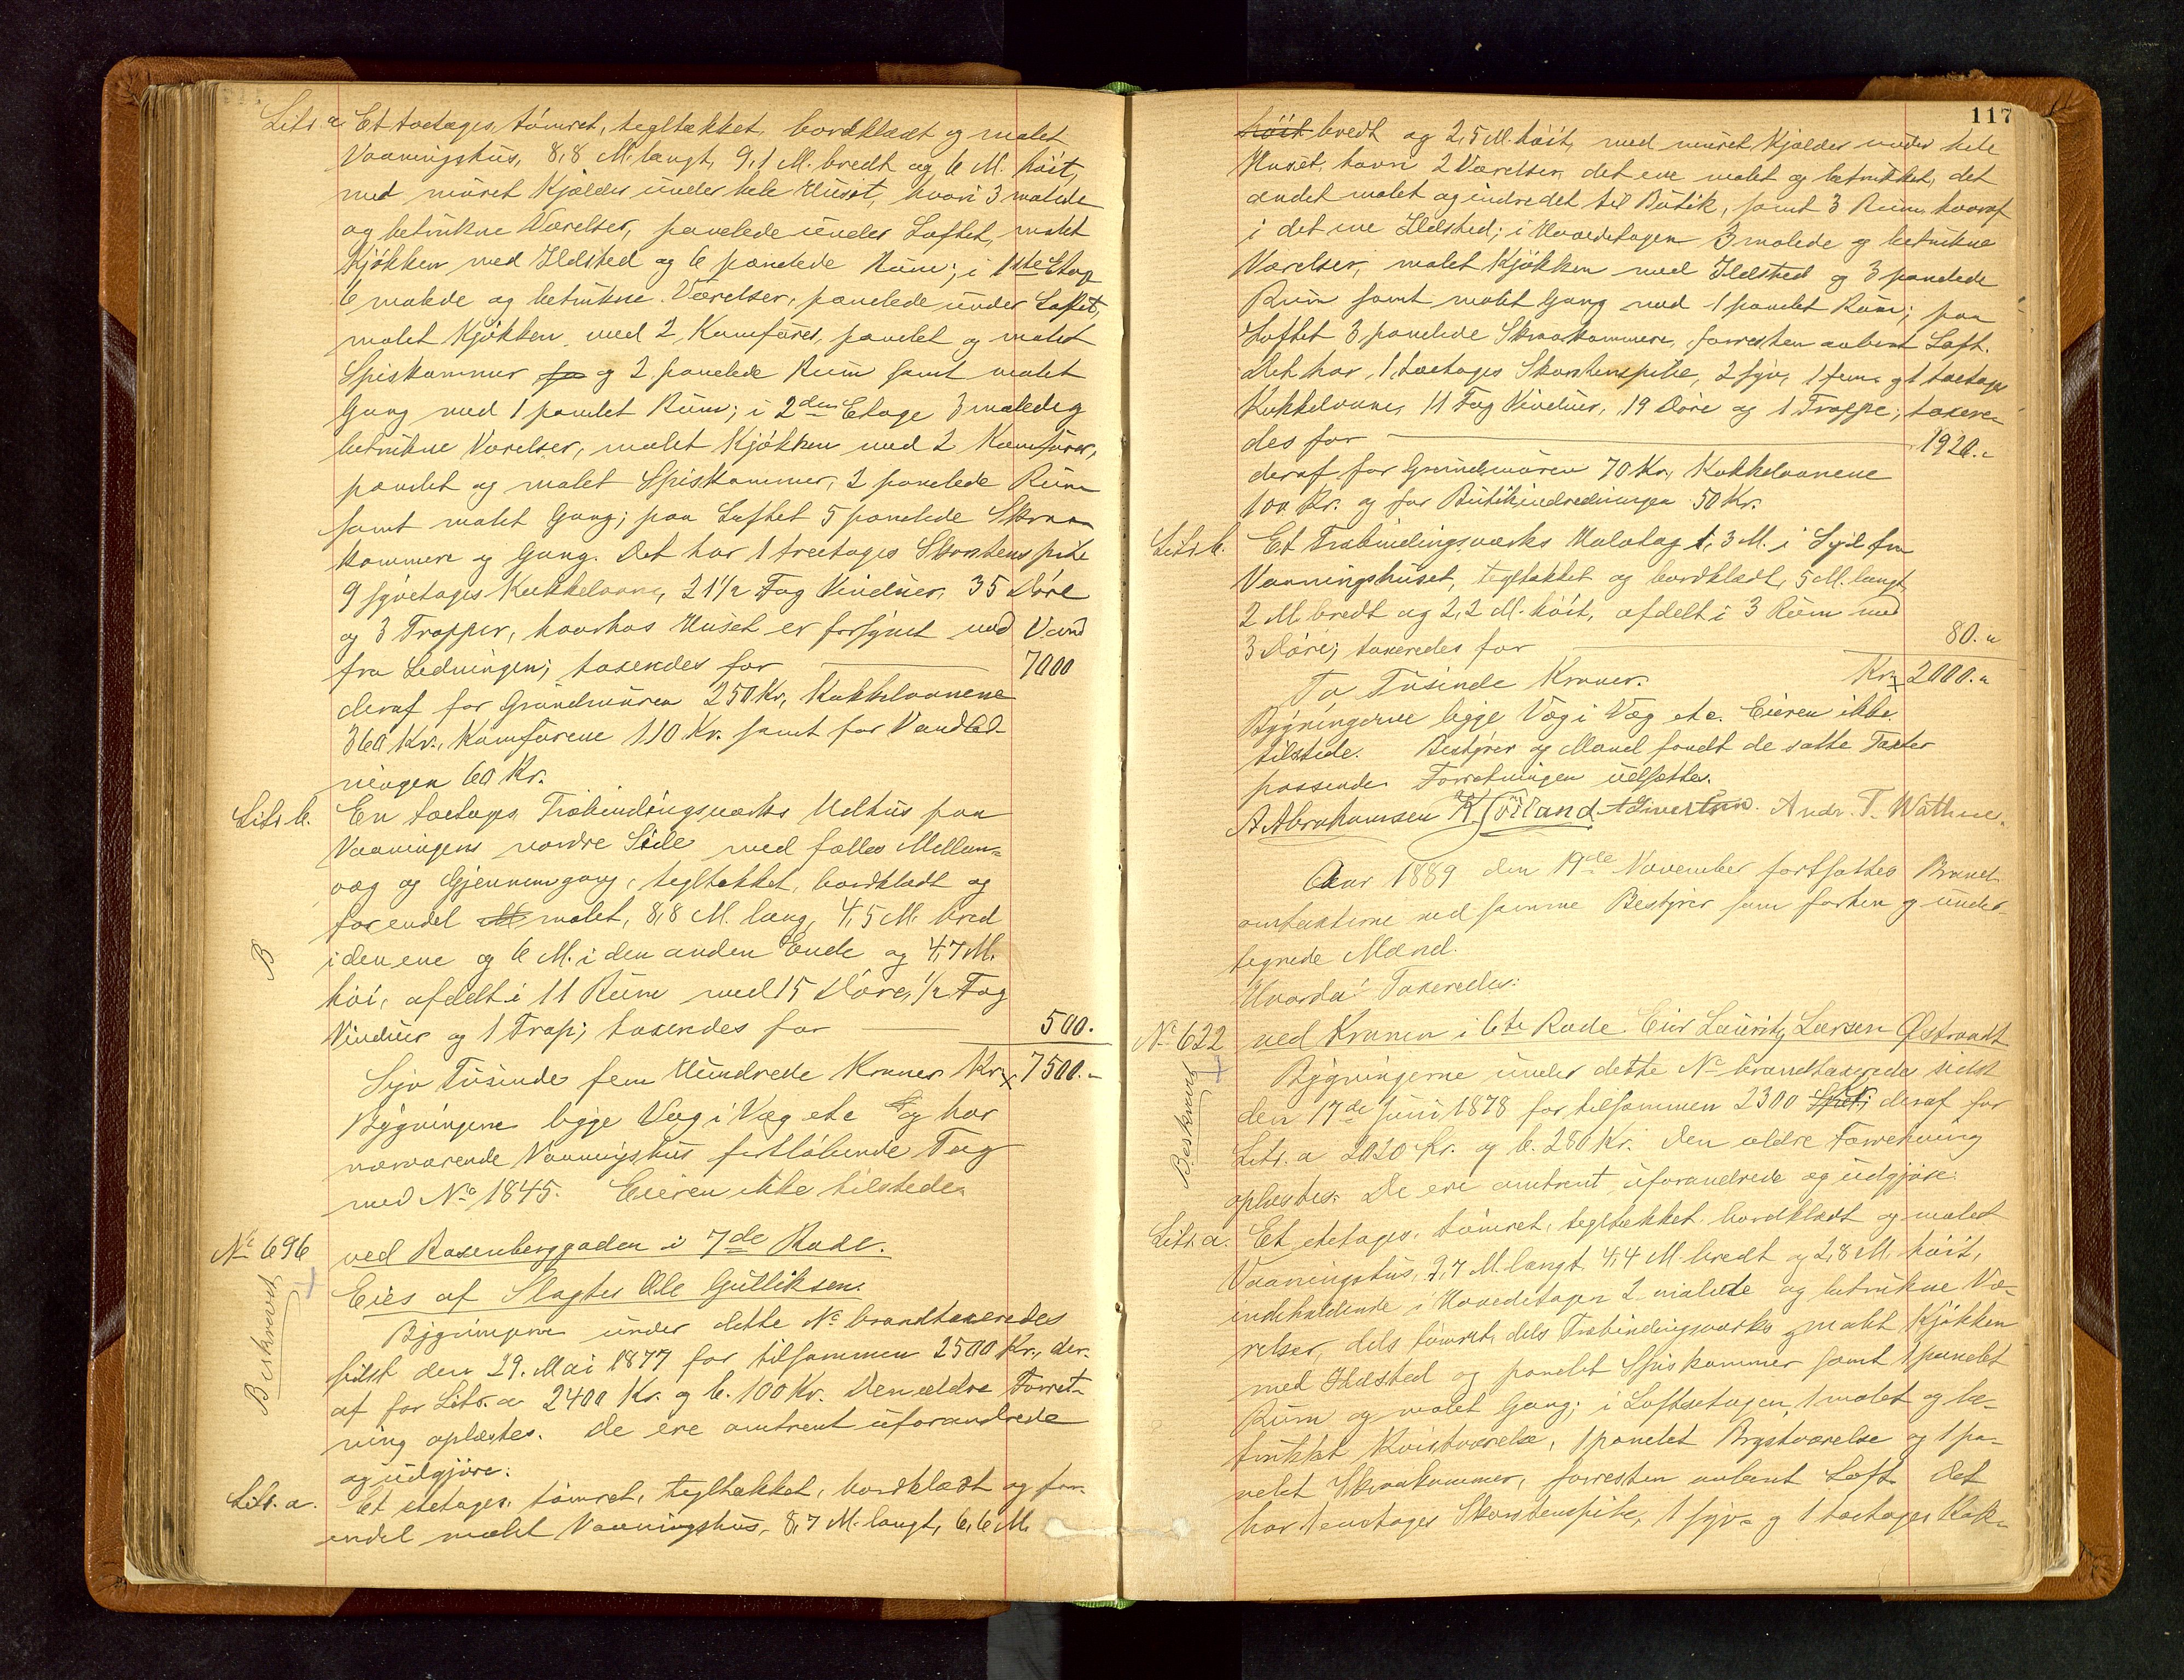 Litr. a. Et toetages, tømret, tegltækket, bordklædt og malet
Vaaningshus, 8,8 M. langt, 9,1 M. bredt og 6 M. høit,
med muret Kjælder under hele Huset, hvori 3 malede
og betrukne Værelser, panelede under Loftet, malet
Kjøkken med Ildsted og 6 panelede Rum; i 1ste Etage
6 malede og betrukne Værelser, panelede under Loftet,
malet Kjøkken med 2 Komfurer, panelet og malet
Spiskammer og 2 panelede Rum samt malet
Gang med 1 panelet Rum; i 2den Etage 3 malede og
betrukne Værelser, malet Kjøkken med 2 Komfurer,
panelet og malet Spiskammer, 2 panelede Rum
samt malet Gang; paa Loftet 5 panelede Skraa-
kammere og Gang. Det har 1 treetages Skorstenspibe
9 syvetages Kakkelovne, 21 1/2 Fag Vinduer, 35 Døre
og 3 Trapper, hvorhos Huset er forsynet med Vand
fra Ledningen; taxeredes for 7000
deraf for Grundmuren 250 Kr, Kakkelovnene
360 Kr., Komfurene 110 Kr. samt for Vandled-
ningen 60 Kr.
Litr. b. En toetages Træbindingsværks Udhus paa
Vaaningens nordre Side med fælles Mellem-
væg og Gjennemgang, tegltækket, bordklædt og
forendel malet, 8,8 M. lang, 4,5 M. bred
i den ene og 6 M. i den anden Ende og 4,7 M.
B
høi, afdelt i 11 Rum med 15 Døre, 1/2 Fag
Vinduer og 1 Trap; taxeredes for 500.
Syv Tusinde fem Hundrede Kroner Kr. 7500.-
Bygningerne ligge Væg i Væg etc og har
nærværende Vaaningshus fortløbende Tag
med No 1845. Eieren ikke tilstede.
No 696 ved Rosenberggaden i 7de Rode.
Eies af Slagter Ole Gulliksen.
Beskrevet
Bygningerne under dette No brandtaxeredes
sidst den 29. Mai 1877 for tilsammen 2500 Kr., der-
af for Litr. a 2400 Kr. og b. 100 Kr. Den ældre Forret-
ning oplæstes. De ere omtrent uforandrede
og udgjøre:
Litr. a. Et etetages, tømret, tegltækket, bordklædt og for-
endel malet Vaaningshus, 8,7 M. langt, 6,6 M.
117
høit bredt og 2,5 M. høit, med muret Kjælder under hele
Huset, hvori 2 Værelser, det ene malet og betrukket, det
andet malet og indredet til Butik, samt 3 Rum, hvoraf
i det ene Ildsted; i Hovedetagen 3 malede og betrukne
Værelser, malet Kjøkken med Ildsted og 3 panelede
Rum samt malet Gang med 1 panelet Rum; paa
Loftet 3 panelede Skraakammere, forresten aabent Loft.
Det har 1 toetages Skorstenspibe, 2 syv-, 1 fem- og 1 toetages
Kakkelovne, 11 Fag Vinduer, 19 Døre og 1 Trappe; taxere-
des for 1920.-
deraf for Grundmuren 70 Kr, Kakkelovnene
100 Kr. og for Butikindredningen 50 Kr.
Litr. b. Et Træbindingsværks Halvtag 1,3 M. i Syd fra
Vaaningshuset, tegltækket og bordklædt, 5 M. langt,
2 M. bredt og 2,2 M. høit, afdelt i 3 Rum med
3 Døre; taxeredes for 80.-
To Tusinde Kroner. Kr. 2000.-
Bygningerne ligge Væg i Væg etc. Eieren ikke
tilstede. Bestyrer og Mænd fandt de satte Taxter
passende. Forretningen udsattes.
A Abrahamsen Andr. T. Wathne.
Aar 1889 den 19de November fortsattes Brand-
omtaxterne ved samme Bestyrer som forhen og under-
tegnede Mænd.
Hvorda: Taxeredes:
No 622 ved Kranen i 6te Rode. Eier Lauritz Larsen Østraadt
Beskrevet
Bygningerne under dette No brandtaxeredes sidst
den 17de Juni 1878 for tilsammen 2300 Kr; deraf for
Litr. a 2020 Kr. og b. 280 Kr. Den ældre Forretning
oplæstes. De ere omtrent uforandrede og udgjøre:
Litr. a. Et etetages, tømret, tegltækket, bordklædt og malet
Vaaningshus, 9,7 M. langt, 4,4 M. bredt og 2,8 M. høit,
indeholdende i Hovedetagen 2 malede og betrukne Væ-
relser, dels tømret, dels Træbindingsværks, malet Kjøkken
med Ildsted og panelet Spiskammer samt 1 panelet
Rum og malet Gang; i Loftsetagen 1 malet og be-
trukket Kvistværelse, 1 panelet Brystværelse og 1 pa-
nelet Skraakammer, forresten aabent Loft. Det
har 1 enetages Skorstenspibe, 1 syv- og 1 toetages Kak-